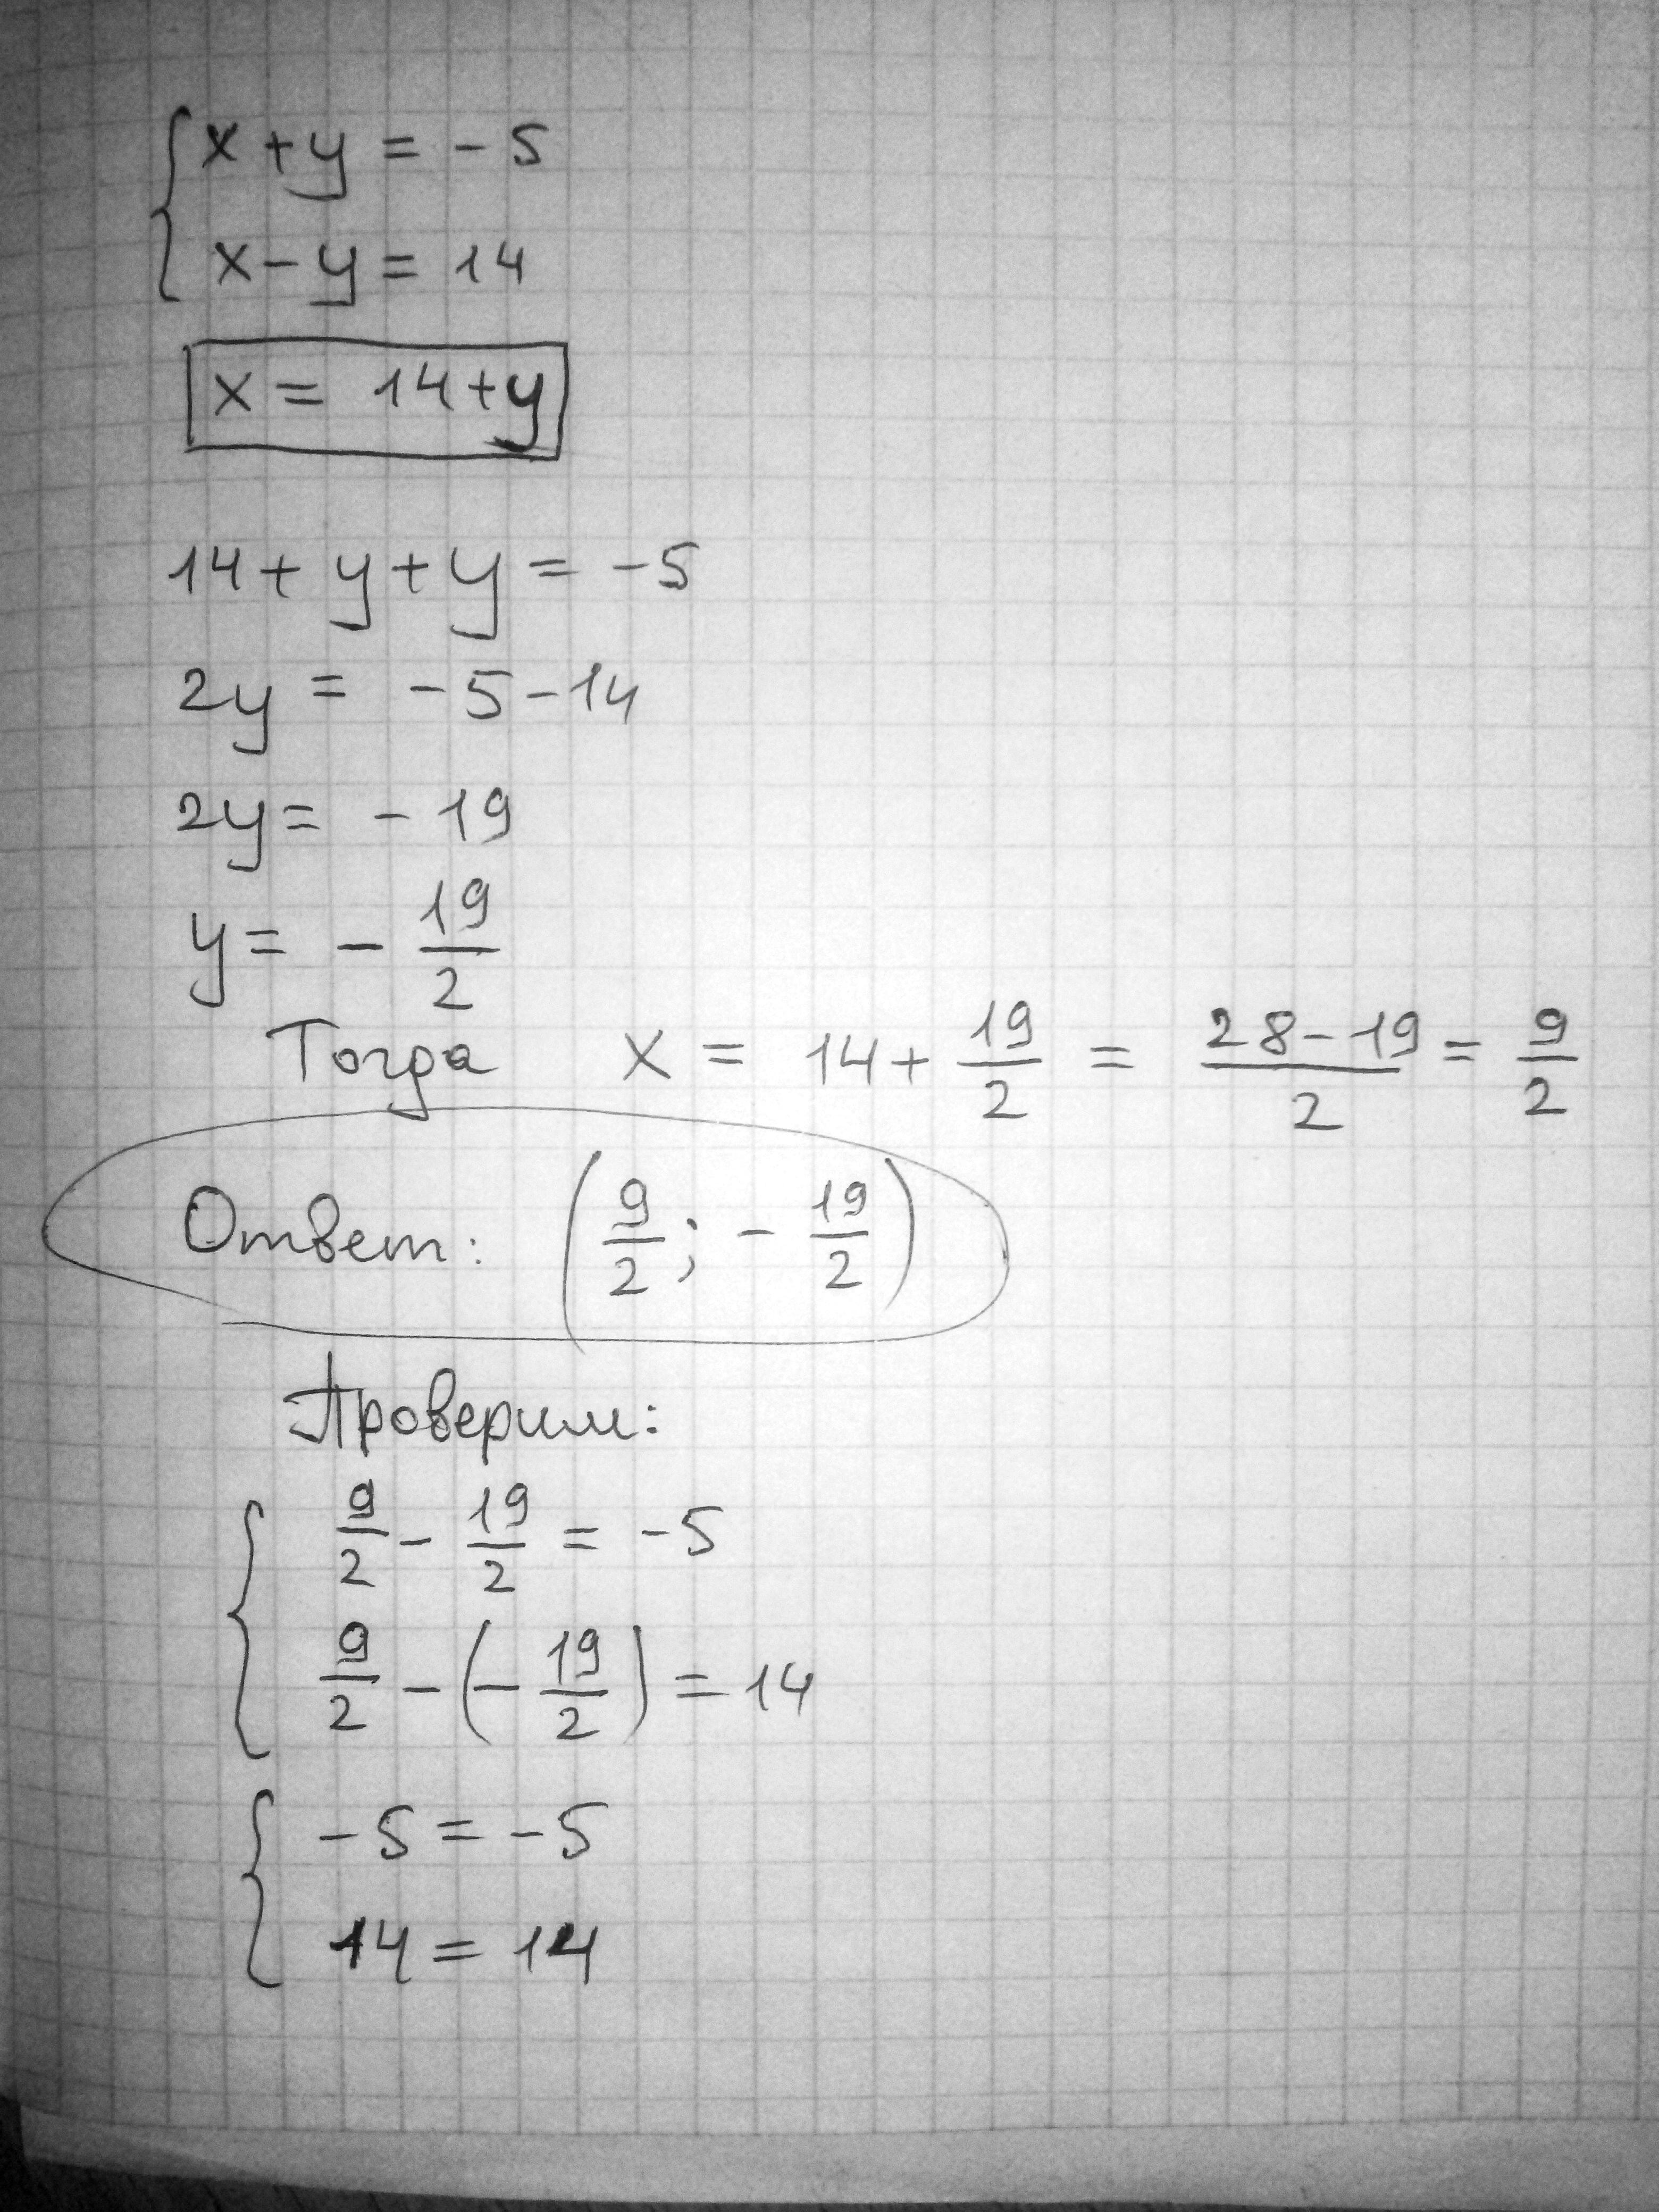 { x + y = - 5
x - y = 14
x = 14 + y
14 + y + y = - 5
2y = - 5 - 14
2y = - 19
y = - 19/2
Тогда x = 14 + 19/2 = (28 - 19)/2 = 9/2
Ответ: (9/2; - 19/2)
Проверим:
{ 9/2 - 19/2 = - 5
9/2 - (- 19/2) = 14
{ - 5 = - 5
14 = 14